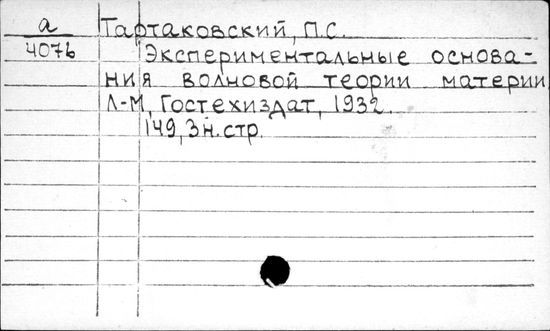 а Тартаковский, П.С.
4076 Экспериментальные основа-
ния волновой теории материи.
Л-М, Гостехиздат, 1932.
149, 3 н. стр.